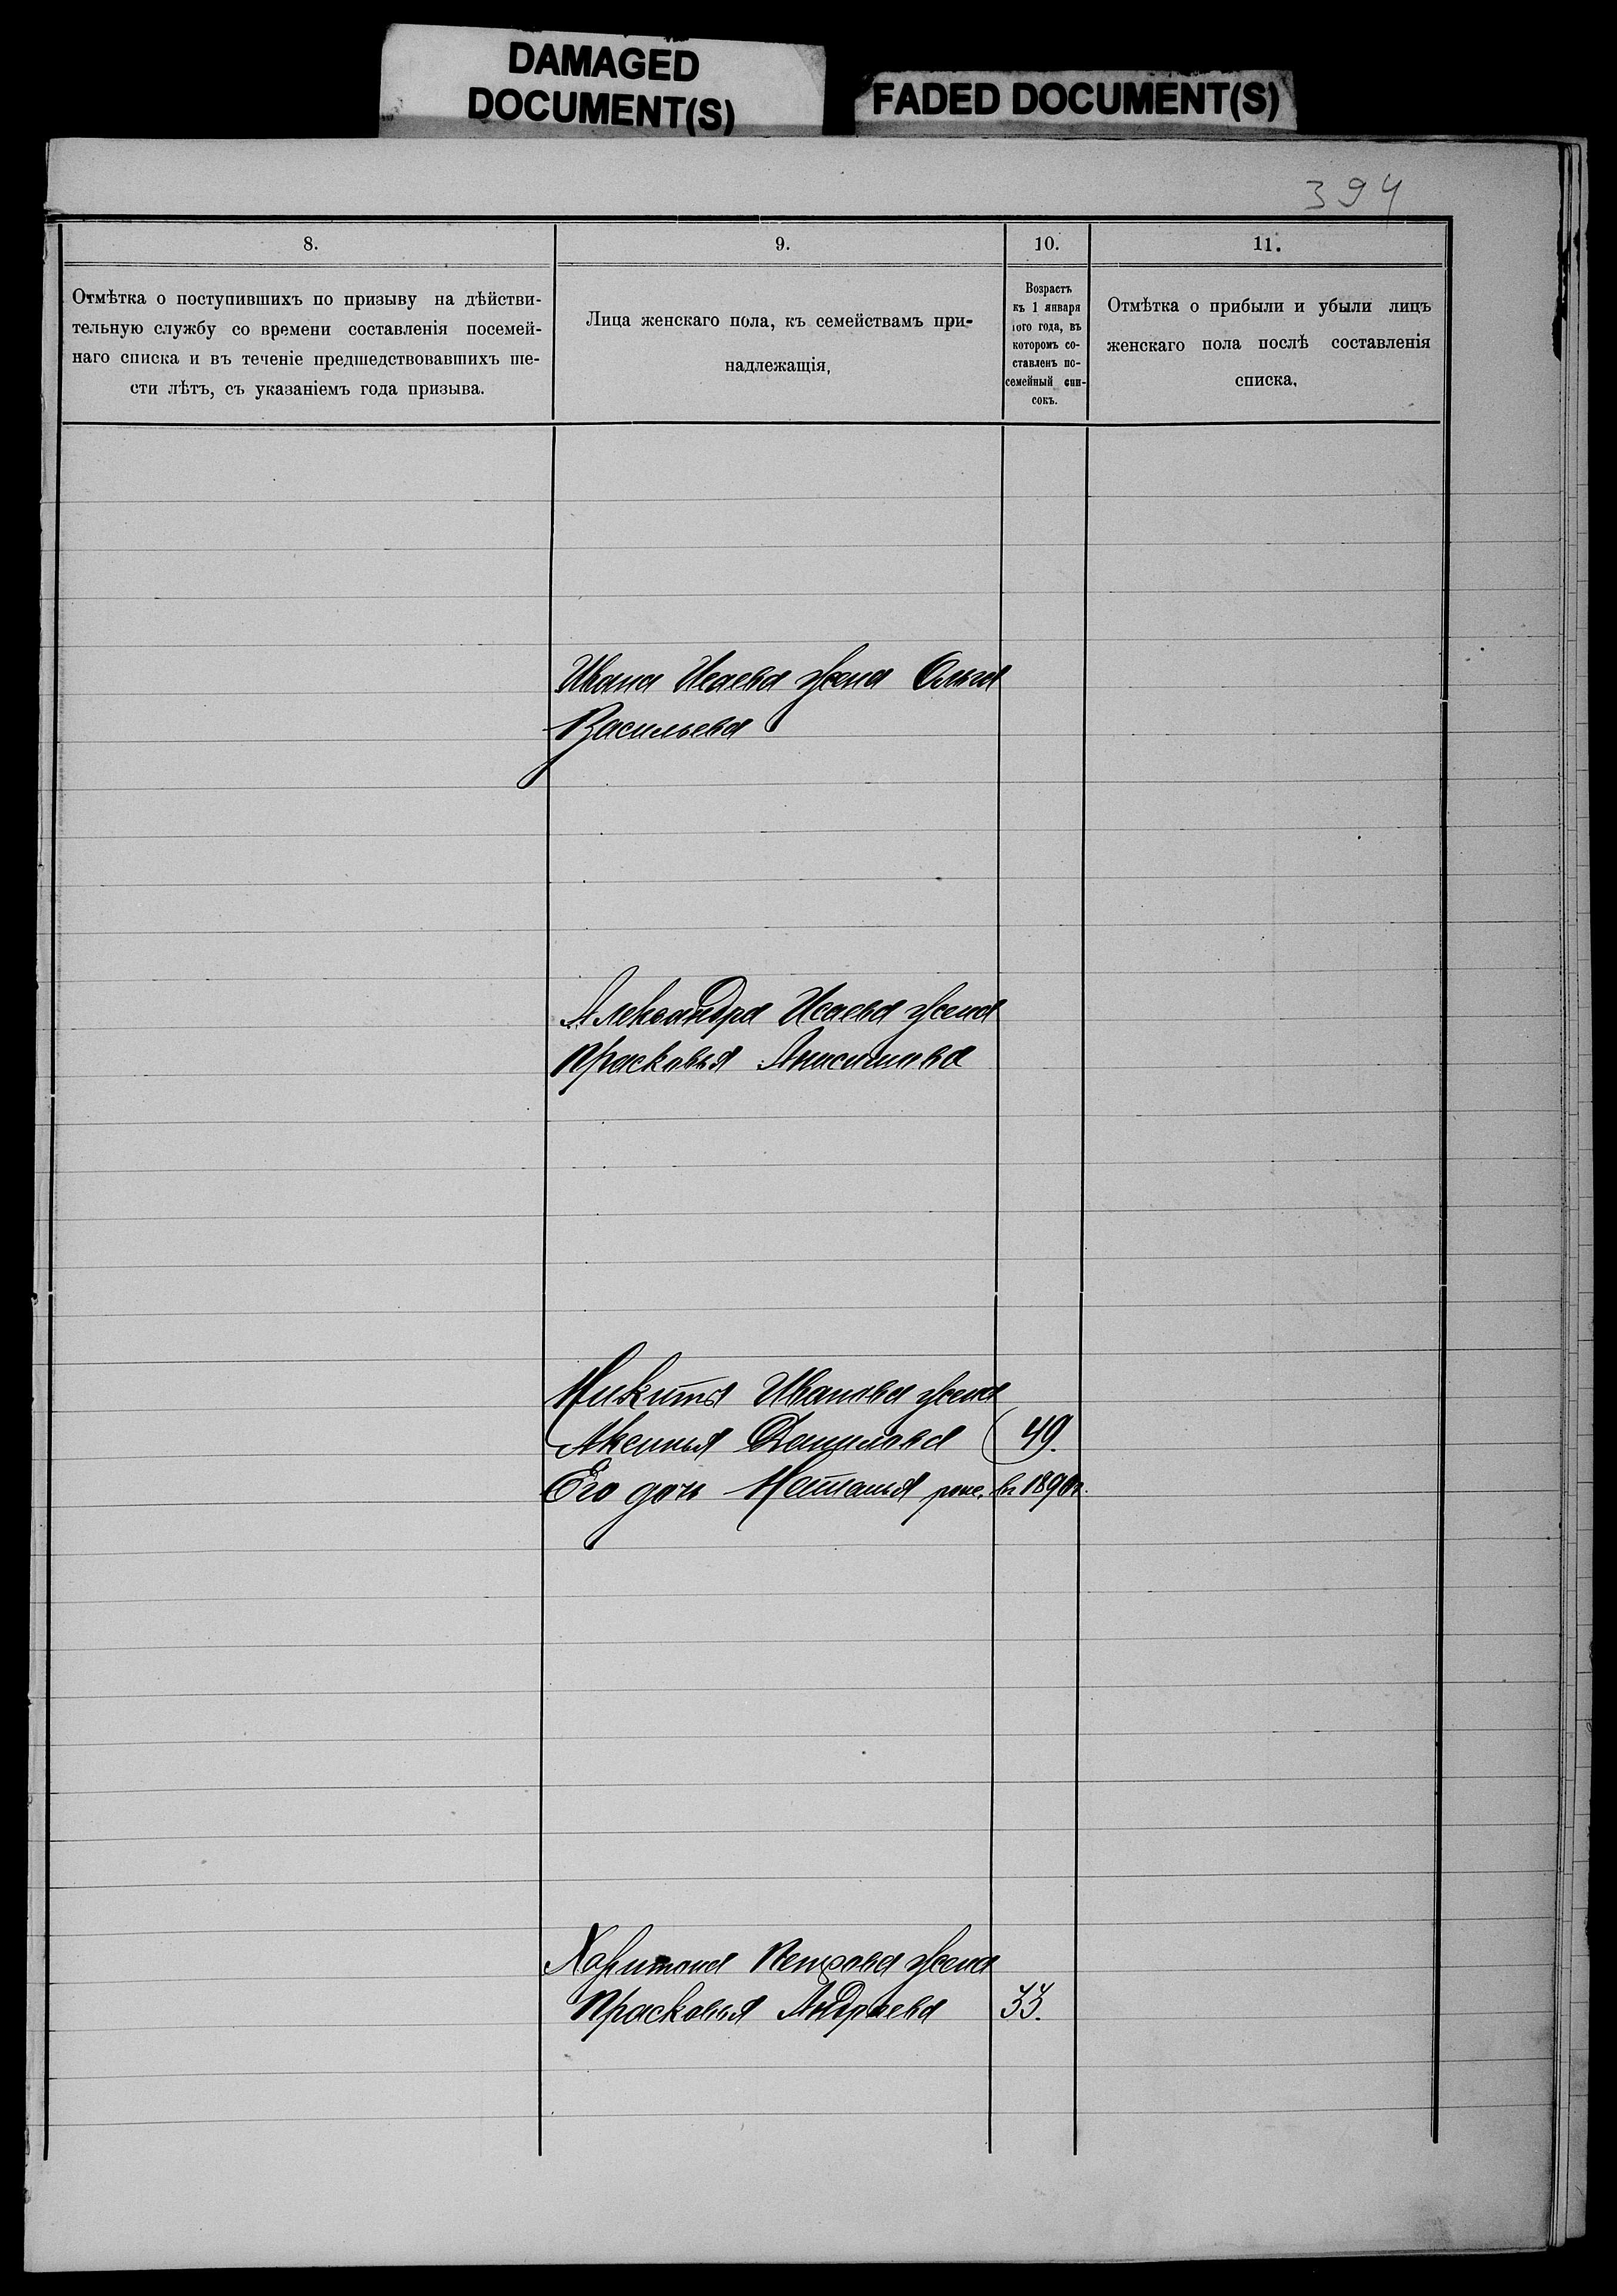 DAMAGED
DOCUMENT(S)
FADED DOCUMENT(S)
394
8.
9.
10.
11.
Отмѣтка о поступившихъ по призыву на дѣйстви-
тельную службу со времени составленія посемей-
наго списка и въ теченіе предшедствовавшихъ ше-
сти лѣтъ, съ указаніемъ года призыва.
Лица женскаго пола, къ семействамъ при-
надлежащія,
Возрастъ
къ 1 января
того года, въ
которомъ со-
ставленъ по-
семейный спи-
сокъ.
Отмѣтка о прибыли и убыли лицъ
женскаго пола послѣ составленія
списка,
Ивана Исаева жена Ольга
Васильева
Александра Исаева жена
Прасковья Анисимова
Никиты Иванова жена
Аксинья Данилова 49.
Его дочь Наталья
Харитона Петрова жена
Прасковья Андреева 33.